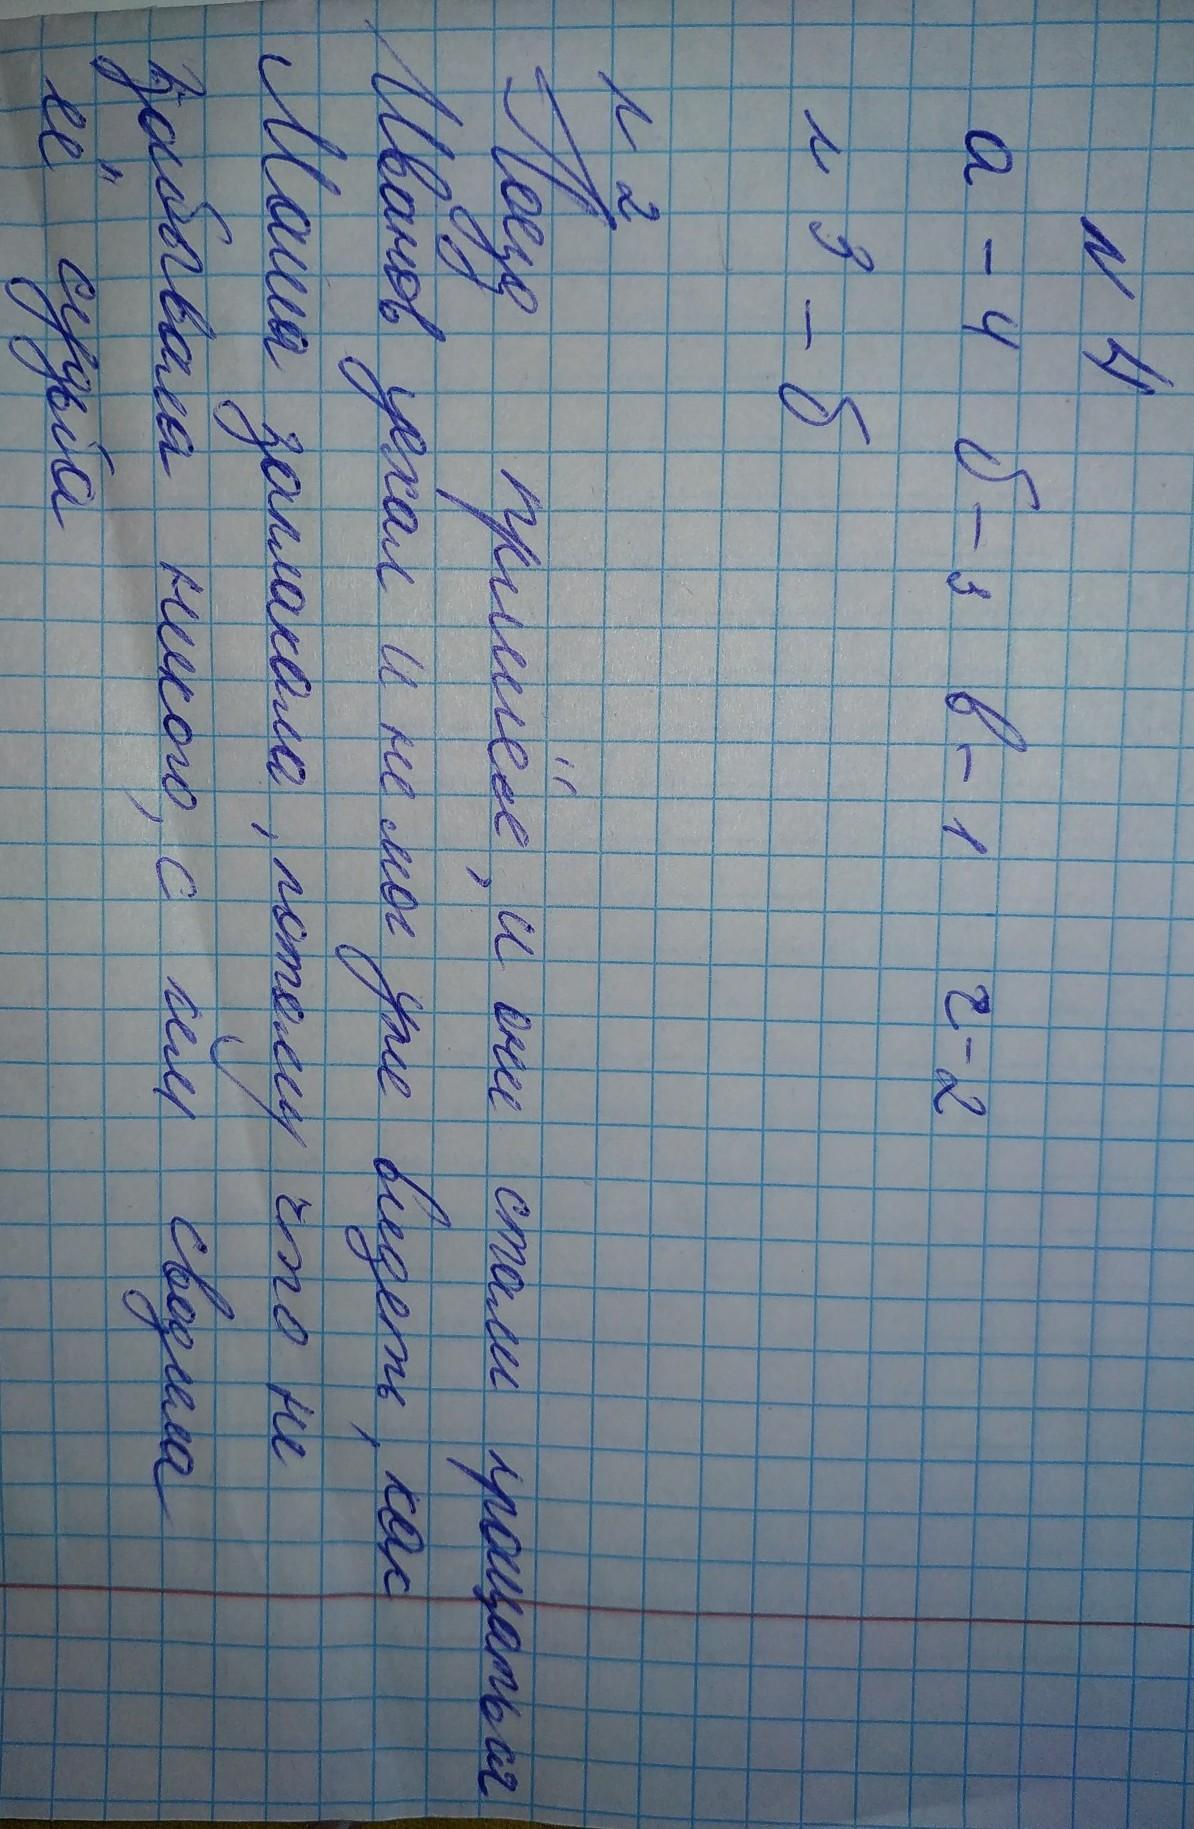 N 4
а - 4 б - 3 в - 1 г - 2
N 3 - б
N 2
Поезд пришёл, и они стали прощаться
Иванов уехал и не мог уже видеть, как
Маша заплакала, потому что не
забывала никого, с кем сводила
её судьба